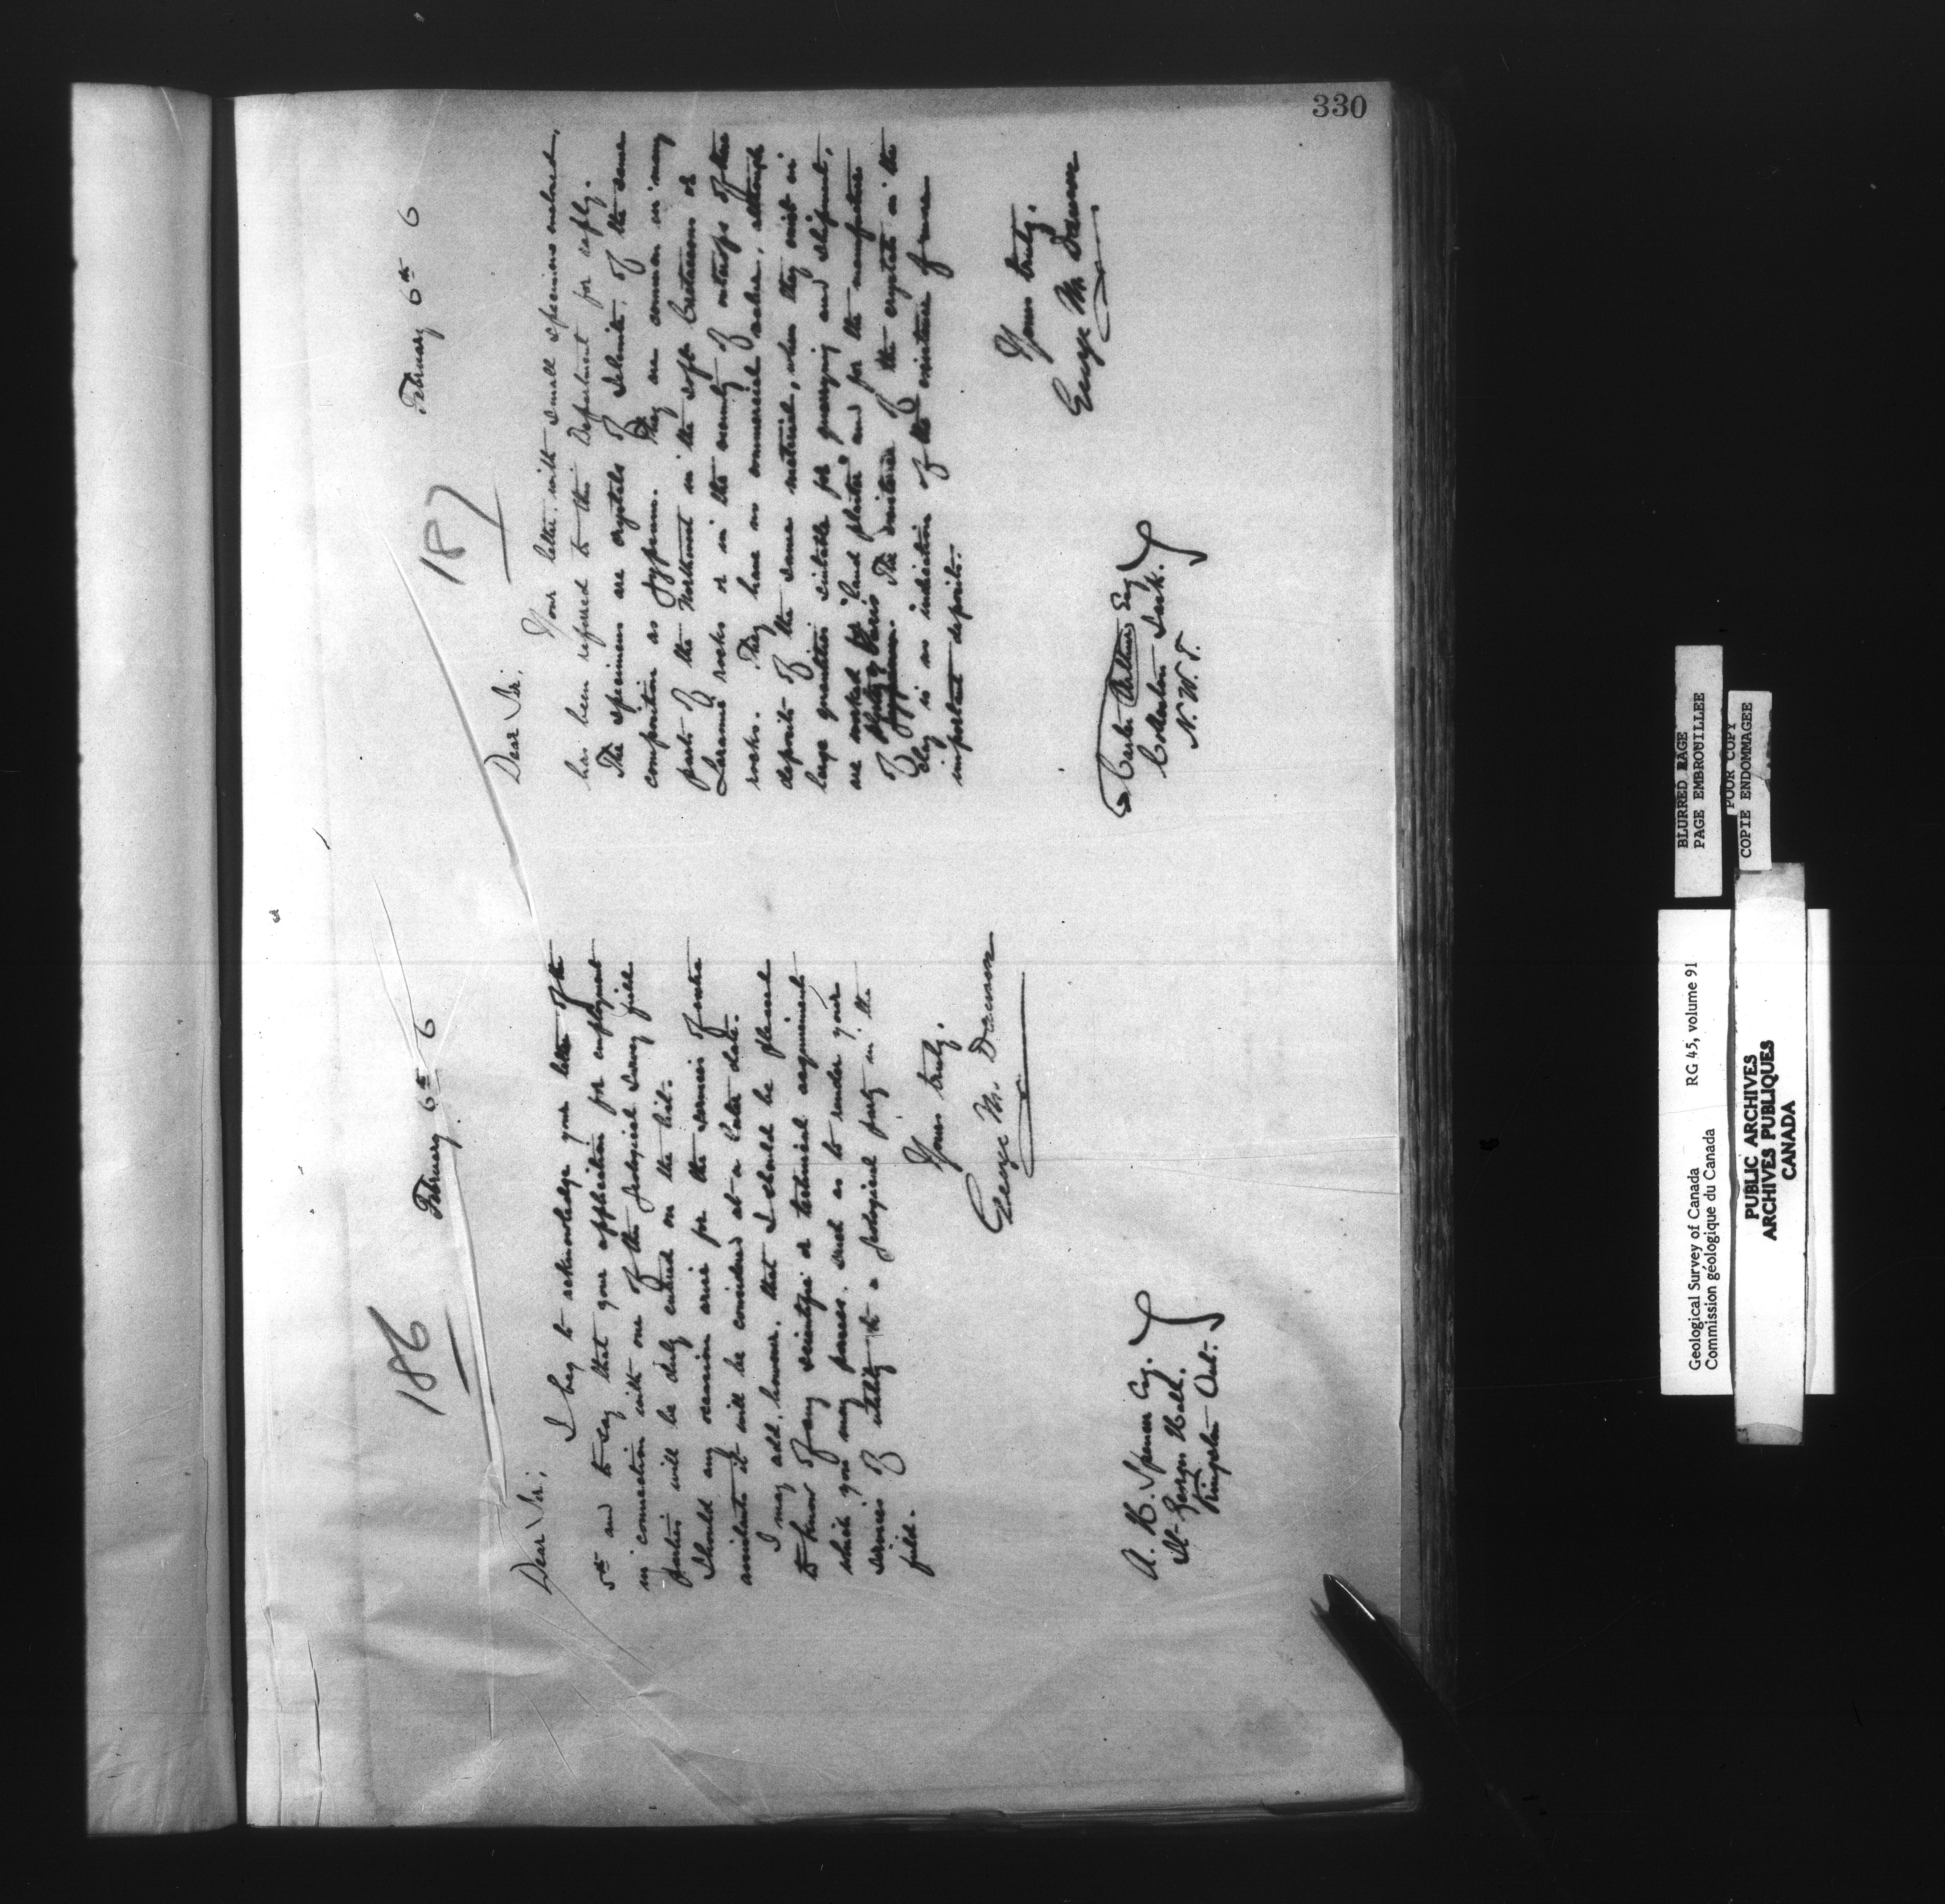 330
186
February 6th 6
Dear Sir,
I beg to acknowledge your letter of the
5th and to say that your application for employment
in connection with one of the Geological Survey field
parties will be duly entered on the list.
Should any occasion arise for the services of extra
assistants it will be considered at a later date.
I may add, however, that I should be pleased
to know of any scientific or technical acquirements
which you may possess, such as to render your
services of utility to a geological party in the
field.
Yours truly,
George M. Dawson
A. H. Spencer Esq.
St. George's Hall.
Kingston Ont.
187
February 6th 6
Dear Sir,
Your letter, with small specimens enclosed,
has been referred to this Department for reply.
The specimens are crystals of selenite, of the same
composition as gypsum. They are common in many
parts of the Northwest in the soft Cretaceous or
Laramie rocks or in the vicinity of outcrops of these
rocks. They have no commercial value, although
deposits of the same material, when they exist in
large quantities suitable for quarrying and shipment,
are worked for "land plaster" and for the manufacture
of plaster of Paris. The existence of the crystals in the
clay is no indication of the existence of more
important deposits.
Yours truly,
George M. Dawson
Esq
N. W. T.
BLURRED PAGE
PAGE EMBROUILLEE
POOR COPY
COPIE ENDOMMAGEE
Geological Survey of Canada RG 45, volume 91
Commission géologique du Canada
PUBLIC ARCHIVES
ARCHIVES PUBLIQUES
CANADA